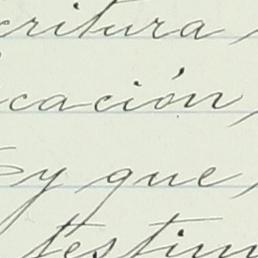 critura,
icación,
y que,
testim